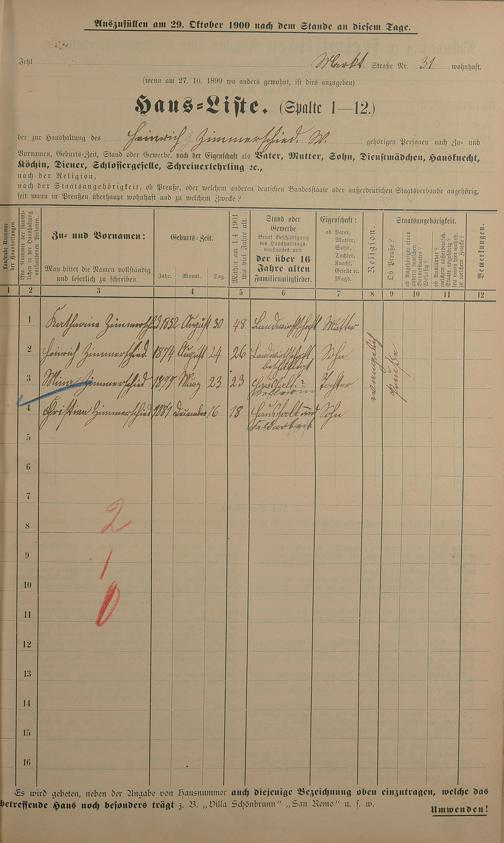 Auszufüllen am 29. Oktober 1900 nach dem Stande an diesem Tage.
Jetzt Markt Straße Nr. 31 wohnhaft.
(wenn am 27. 10. 1899 wo anders gewohnt, ist dies anzugeben)
Haus=Liste. (Spalte 1—12.)
der zur Haushaltung des Heinrich Zimmerschied. W. gehörigen Personen nach Zu= und
Vornamen, Geburts=Zeit, Stand oder Gewerbe, nach der Eigenschaft als Vater, Mutter, Sohn, Dienstmädchen, Hausknecht,
Köchin, Diener, Schlossergeselle, Schreinerlehrling ꝛc.,
nach der Religion,
nach der Staatsangehörigkeit, ob Preuße, oder welchem anderen deutschen Bundesstaate oder außerdeutschen Staatsverbande angehörig,
seit wann in Preußen überhaupt wohnhaft und zu welchem Zwecke?
Zu= und Vornamen:
Man bittet die Namen vollständig
und leserlich zu schreiben.
Geburts=Zeit.
Jahr. Monat. Tag.
Mithin am 1/4 1901
wie viel Jahre alt.
Stand oder
Gewerbe
der über 16
Jahre alten
Familienmitglieder.
Eigenschaft:
ob Vater,
Mutter,
Sohn,
Tochter,
Knecht,
Geselle ꝛc.
Magd.
Religion.
Staatsangehörigkeit.
Ob Preuße?
Bemerkungen.
1 2 3 4 5 6 7 8 9 10 11 12
1 Katharina Zimmerschied 1852 August 30 48 Landwirthschaft Mutter
2 Heinrich Zimmerschied 1874 August 24 26 Landwirthschaft Sohn
3 Zimmerschied 1877 März 23 23 Tochter
4 Christian Zimmerschied Dezember 16 18 Haushalt und Sohn
Feldarbeit
evangelisch
Preuße
5
6
7
8
9
10
11
12
13
14
15
16
2
1
0
Es wird gebeten, neben der Angabe von Hausnummer auch diejenige Bezeichnung oben einzutragen, welche das
betreffende Haus noch besonders trägt z. B. „Villa Schönbrunn" „San Remo" u. s. w.
Umwenden!